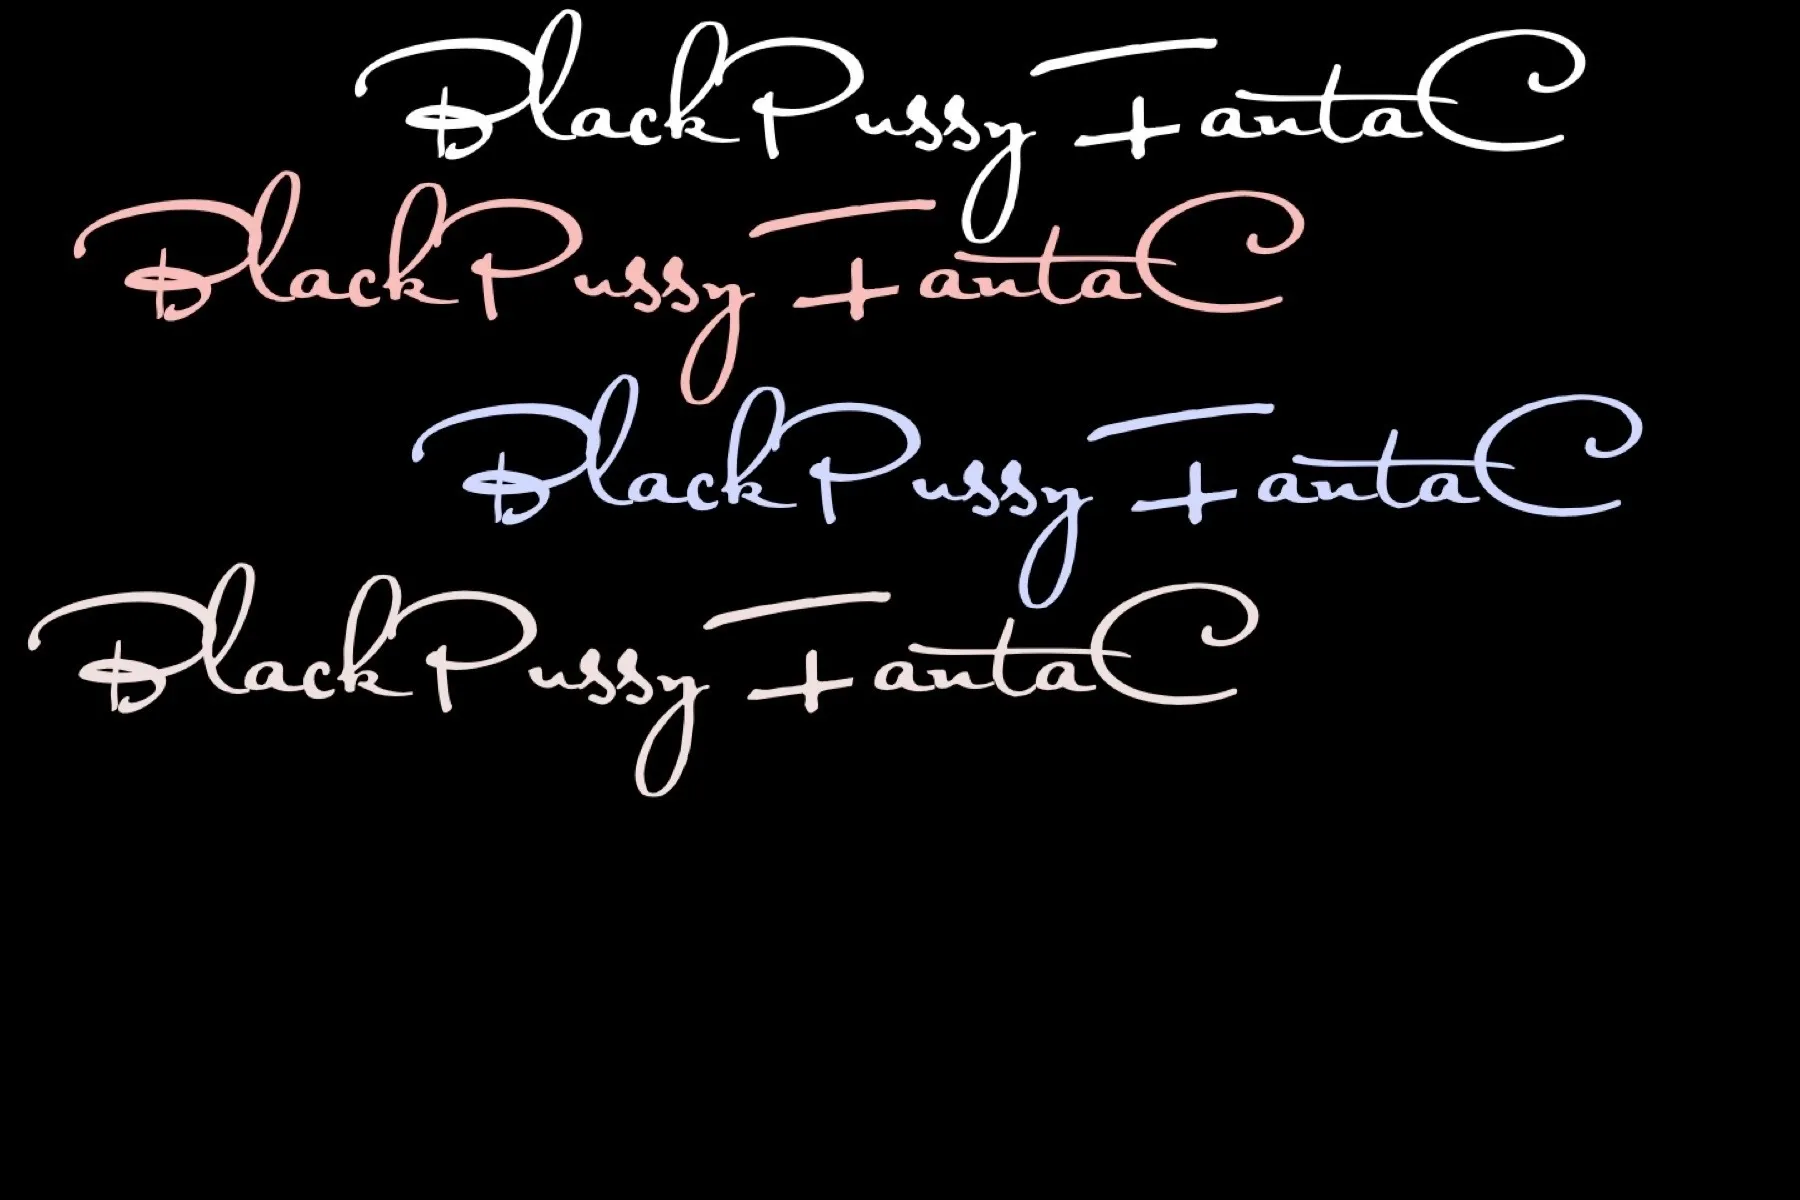 BlackPussy FantaC
BlackPussy FantaC
BlackPussy FantaC
BlackPussy FantaC